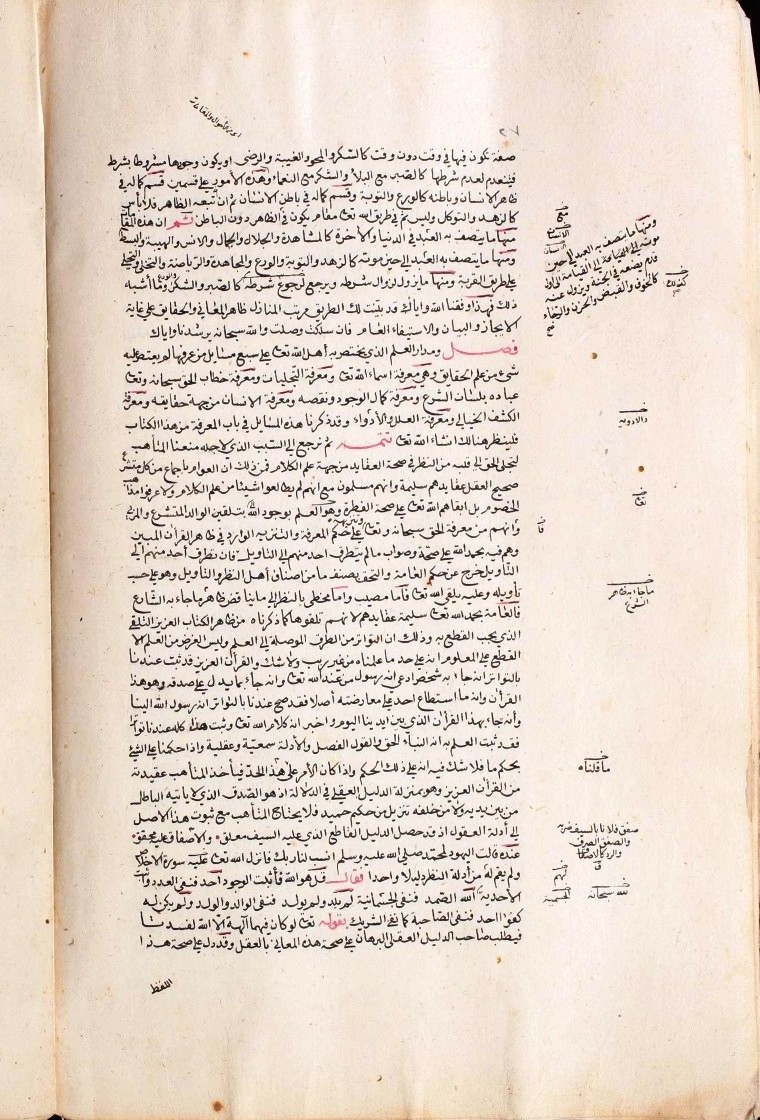 ٢٧
صفة تكون فيها في وقت دون وقت كالسكر والمحو والغيبة والرضى او يكون وجودها مشروطا بشرط
فينعدم لعدم شرطها كالصبر مع البلاء والشكر مع النعماء وهذه الأمور على قسمين قسم كماله في
ظاهر الانسان وباطنه كالورع والتوبة وقسم كماله في باطن الانسان ثم ان تبعه الظاهر فلا بأس
كالزهد والتوكل وليس ثم في طريق الله تعا مقام يكون في الظاهر دون الباطن ثم ان هذه المقا
منها ما يتصف به العبد في الدنيا والآخرة كالمشاهدة والجلال والجمال والانس والهيبة والبسط
ومنها ما يتصف به العبد الى حين موته كالزهد والتوبة والورع والمجاهدة والرياضة والتخلي والتحلي
على طريق القربة ومنها ما يزول لزوال شرطه ويرجع لرجوع شرطه كالصبر والشكر والورع وما أشبه
ذلك فهذا وفقنا الله واياك قد بينت لك الطريق مرتب المنازل ظاهر المعاني والحقايق على غاية
الايجاز والبيان والاستيفاء العام فان سلكت وصلت والله سبحانه يرشدنا واياك
فصل ومدار العلم الذي يختص به أهل الله تعا على سبع مسايل من عرفها لم يعتص عليه
شيء من علم الحقايق وهي معرفة اسماء الله تعا ومعرفة التجليات ومعرفة خطاب الحق سبحانه وتعا
عباده بلسان الشرع ومعرفة كمال الوجود ونقصه ومعرفة الانسان من جهة حقايقه ومعرفة
الكشف الخيالي ومعرفة العلل والأدواء وقد ذكرنا هذه المسايل في باب المعرفة من هذا الكتاب
فلينظر هنالك انشاء الله تعا تتمه ثم نرجع الى السبب الذي لاجله منعنا المتأهب
لتجلي الحق الى قلبه من النظر في صحة العقايد من جهة علم الكلام فمن ذلك ان العوام باجماع من كل متشرع
صحيح العقل عقايدهم سليمة وانهم مسلمون مع انهم لم يطالعوا شيئا من علم الكلام ولا عرفوا مذاهب
الخصوم بل ابقاهم الله تعا على صحة الفطرة وهو العلم بوجود الله بتلقين الوالد المتشرع والمربي
وانهم من معرفة الحق سبحانه وتعا وتنزيهه على حكم المعرفة والتنزيه الوارد في ظاهر القرآن المبين
وهم فيه بحمد الله على صحة وصواب ما لم يتطرف احد منهم الى التاويل فان تطرف أحد منهم الى
التاويل خرج عن حكم العامة والتحق بصنف ما من اصناف أهل النظر والتاويل وهو على حسب
تأويله وعليه يلقى الله تعا فاما مصيب واما مخطي بالنظر الى ما يناقض ظاهر ما جاء به الشارع
فالعامة بحمد الله تعا سليمة عقايدهم لانهم تلقوها كما ذكرناه من ظاهر الكتاب العزيز التلقي
الذي يجب القطع به وذلك ان التواتر من الطرف الموصلة الى العلم وليس الغرض من العلم الا
القطع على المعلوم انه على حد ما علمناه من غير ريب ولا شك والقرآن العزيز قد ثبت عندنا
بالتواتر انه جاء به شخص ادعى انه رسول من عند الله تعا وانه جاء بما يدل على صدقه وهو هذا
القرآن وانه ما استطاع احد على معارضته أصلا فقد صح عندنا بالتواتر انه رسول الله الينا
وأنه جاء بهذا القرآن الذي بين ايدينا اليوم واخبر انه كلام الله تعا وثبت هذا كله عندنا تواترا
فقد ثبت العلم به انه النباء الحق والقول الفصل والأدلة سمعية وعقلية واذا حكمنا على الشيء
بحكم ما فلا شك فيه انه على ذلك الحكم واذا كان الأمر على هذا الحد فيأخذ المتأهب عقيدته
من القرآن العزيز وهو بمنزلة الدليل العقلي في الدلالة اذ هو الصدق الذي لا ياتيه الباطل
من بين يديه ولا من خلفه تنزيل من حكيم حميد فلا يحتاج المتأهب مع ثبوت هذا الاصل
الى أدلة العقول اذ قد حصل الدليل القاطع الذي عليه السيف معلق والاصفاق عليه محقق
عنده قالت اليهود لمحمد صلى الله عليه وسلم انسب لنا ربك فانزل الله تعا عليه سورة الاخلاص
ولم يقم له من أدلة النظر دليلا واحدا فقال قل هو الله فأثبت الوجود أحد فنفى العدد واثبت
الأحدية الله الصمد فنفى الجسمانية لم يلد ولم يولد فنفى الوالد والولد ولم يكن له
كفوا احد فنفى الصاحبة كما نفى الشريك بقوله تعا لو كان فيهما آلهة الا الله لفسدتا
فيطلب صاحب الدليل العقلي البرهان على صحة هذه المعاني بالعقل وقد دل على صحة هذا
اللفظ
ومنها ما يتصف به العبد الى حين
موته الى القيامة الى اول
قدم يضعه في الجنة ويزول عنه
كالخوف والقبض والحزن والرجاء
والادوية
تعا
ما جاء به ظاهر
الشرع
ما قلناه
صفق فلانا بالسيف ضربه
والصفق الصرف
والرد كالاصفاق
لله سبحانه
الجسمية